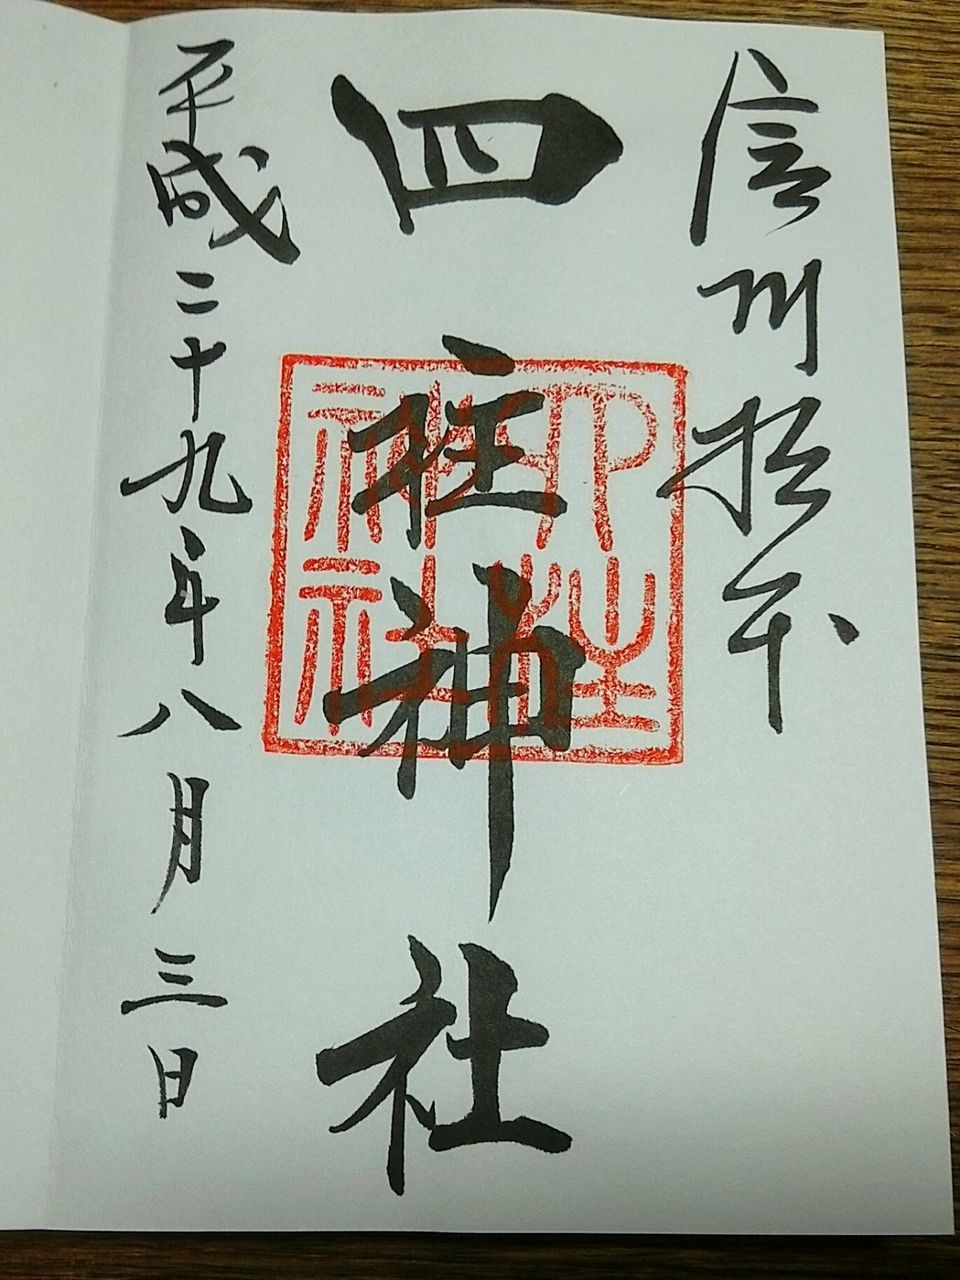 信州松本
四柱神社
平成二十九年八月三日
四柱
神社